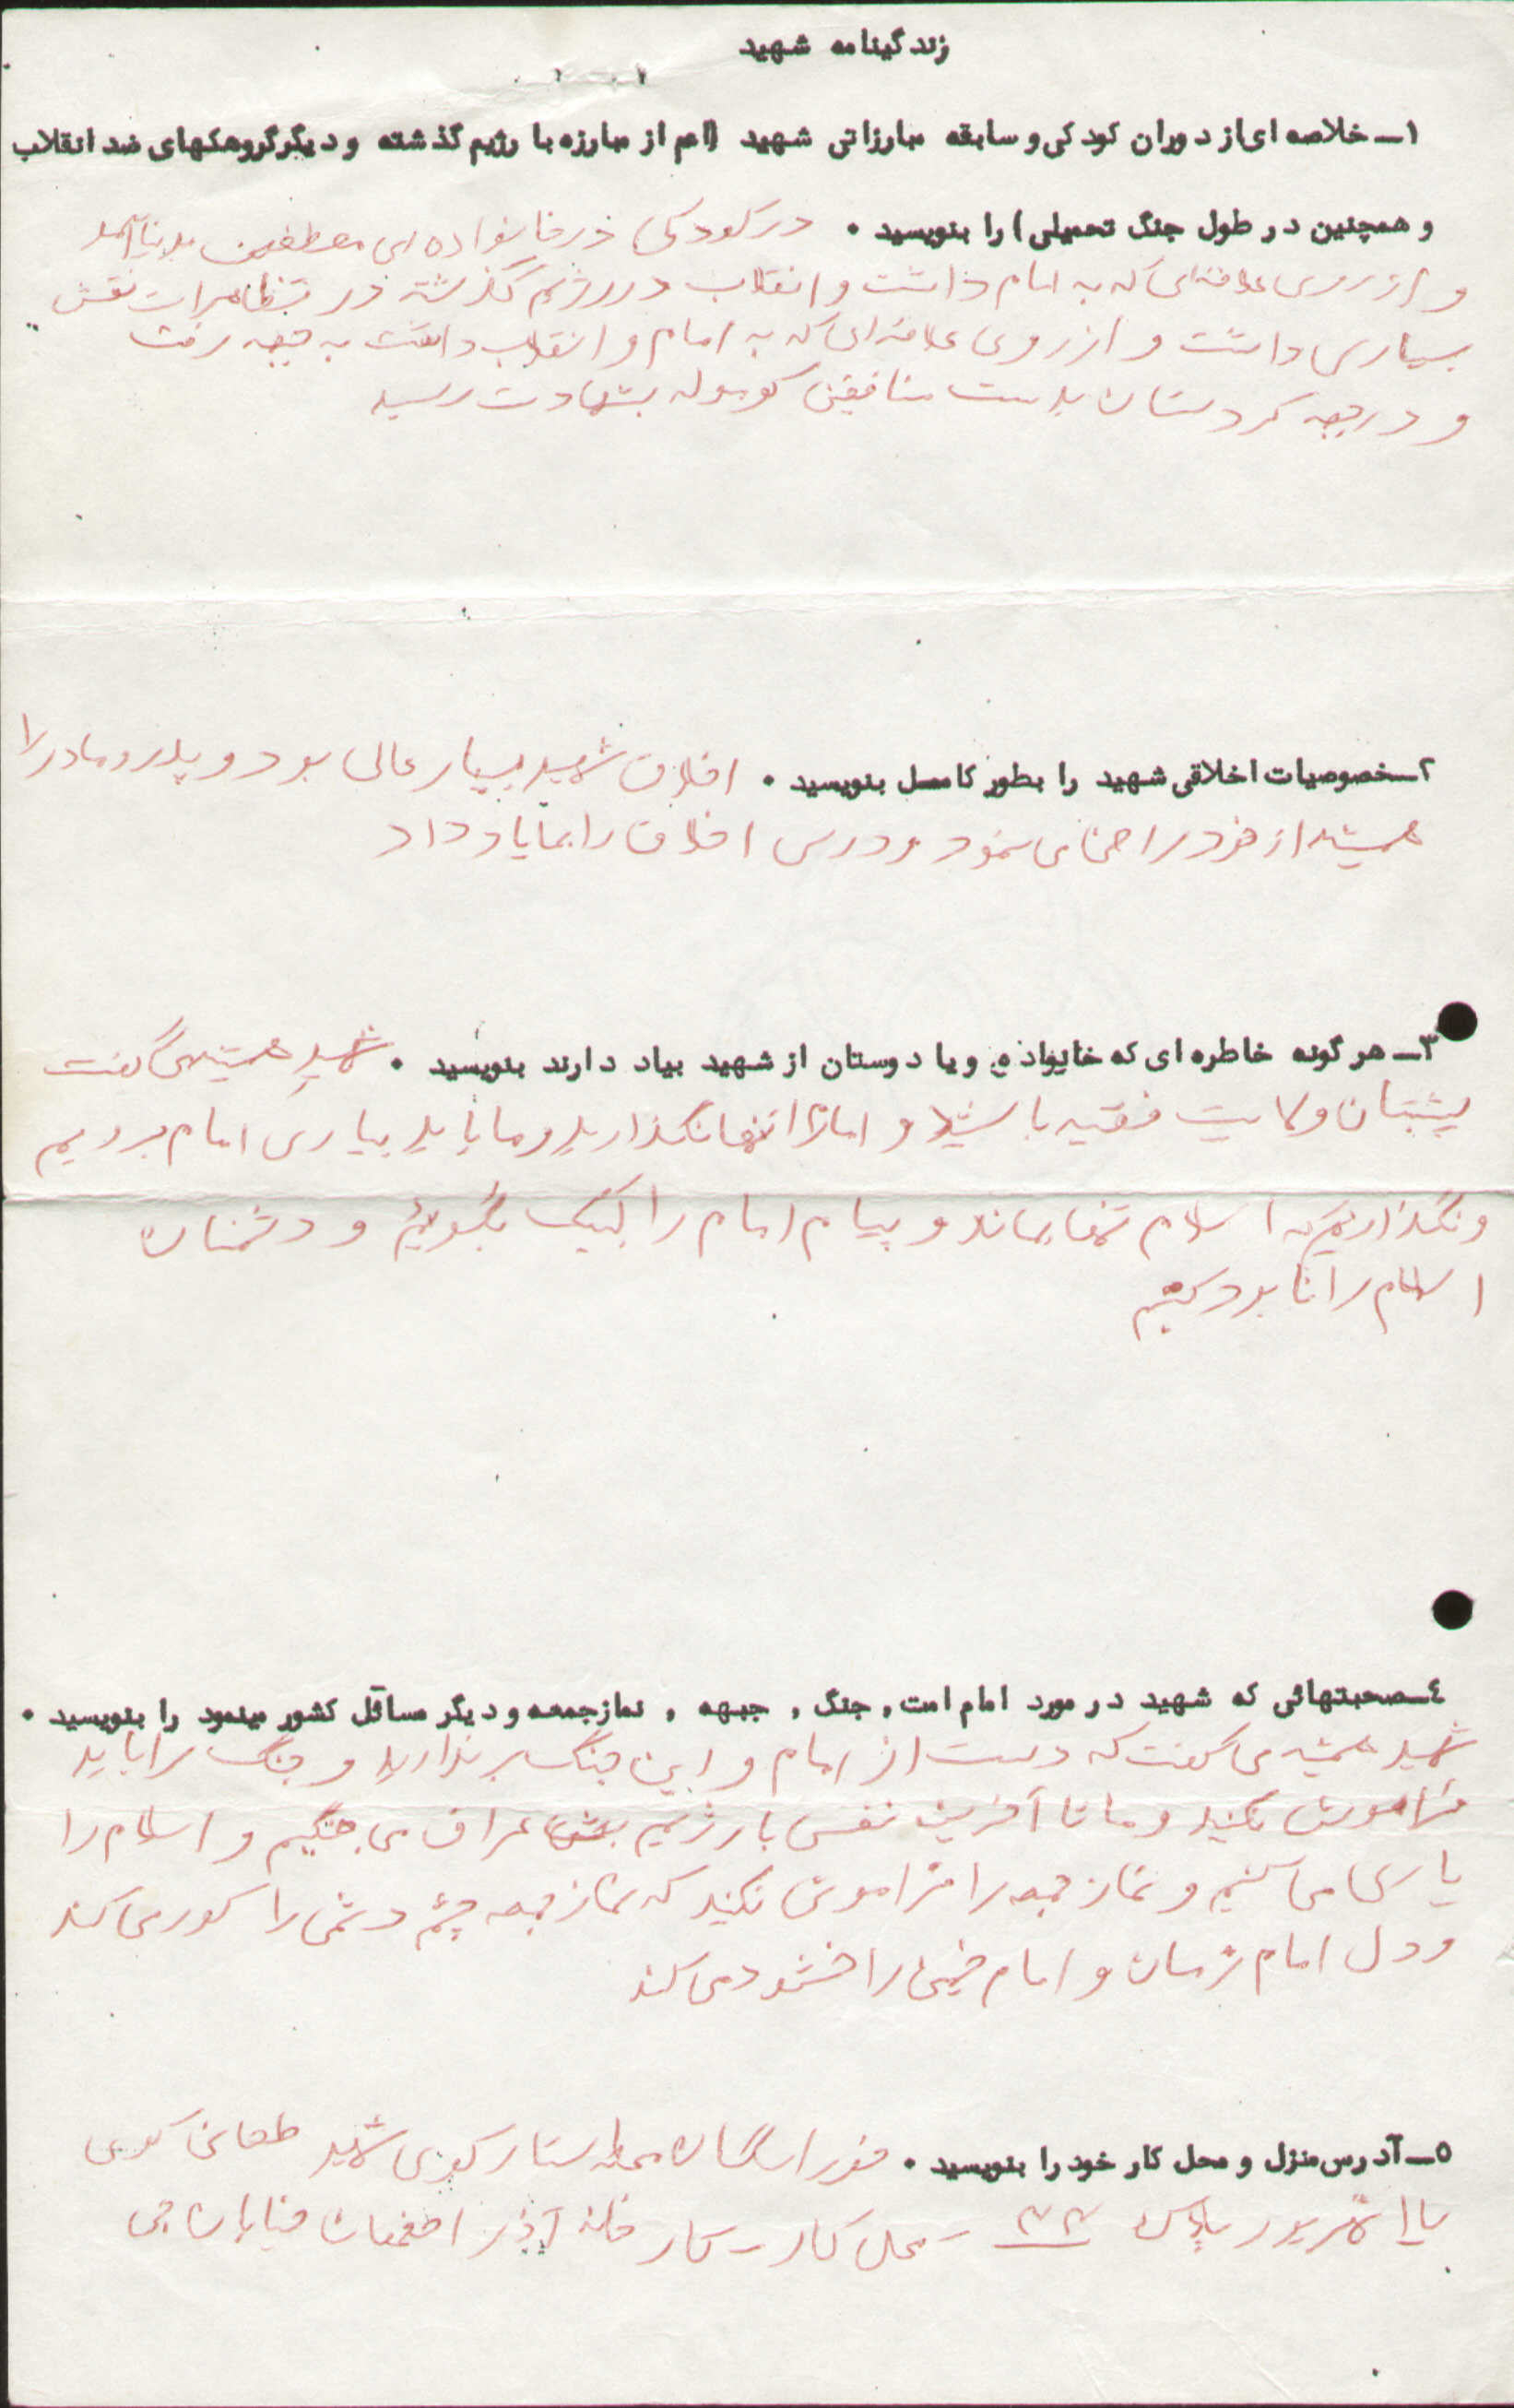 زندگینامه شهید
۱ــ خلاصه ای از دوران کودکی و سابقه مبارزاتی شهید (اعم از مبارزه با رژیم گذشته و دیگر گروهکهای ضد انقلاب
و همچنین در طول جنگ تحمیلی) را بنویسید . در کودکی در خانواده ای مستضعف بدنیا آمد
و از روی علاقه‌ای که به امام داشت و انقلاب در رژیم گذشته در تظاهرات نقش
بسیاری داشت و از روی علاقه‌ای که به امام و انقلاب داشت به جبهه رفت
و در جبهه کردستان بدست منافقین کوموله بشهادت رسید
۲ــ خصوصیات اخلاقی شهید را بطور کامل بنویسید . اخلاق شهید بسیار عالی بود و پدر و مادر را
همیشه از خود راضی می نمود و درس اخلاق را بما یاد داد
۳ــ هر گونه خاطره ای که خانواده و یا دوستان از شهید بیاد دارند بنویسید . شهید همیشه می گفت
پشتبان ولایت فقیه باشید و امام را تنها نگذارید و ما باید بیاری امام برویم
و نگذاریم که اسلام تنها بماند و پیام امام را لبیک بگوییم و دشمنان
اسلام را نابود کنیم
٤ــ صحبتهائی که شهید در مورد امام امت , جنگ , جبهه , نماز جمعه و دیگر مسائل کشور مینمود را بنویسید .
شهید همیشه می گفت که دست از امام و این جنگ برندارید و جنگ را باید
فراموش نکنید و ما تا آخرین نفس با رژیم عراق می جنگیم و اسلام را
یاری می کنیم و نماز جمعه را فراموش نکنید که نماز جمعه چشم دشمن را کور می کند
و دل امام زمان و امام خمینی را خشنود می کند
٥ــ آدرس منزل و محل کار خود را بنویسید . خوراسگان محله ستار کوی شهید کوی
پلاک ۳۳ – محل کار – کارخانه آذر اصفهان خیابان جی